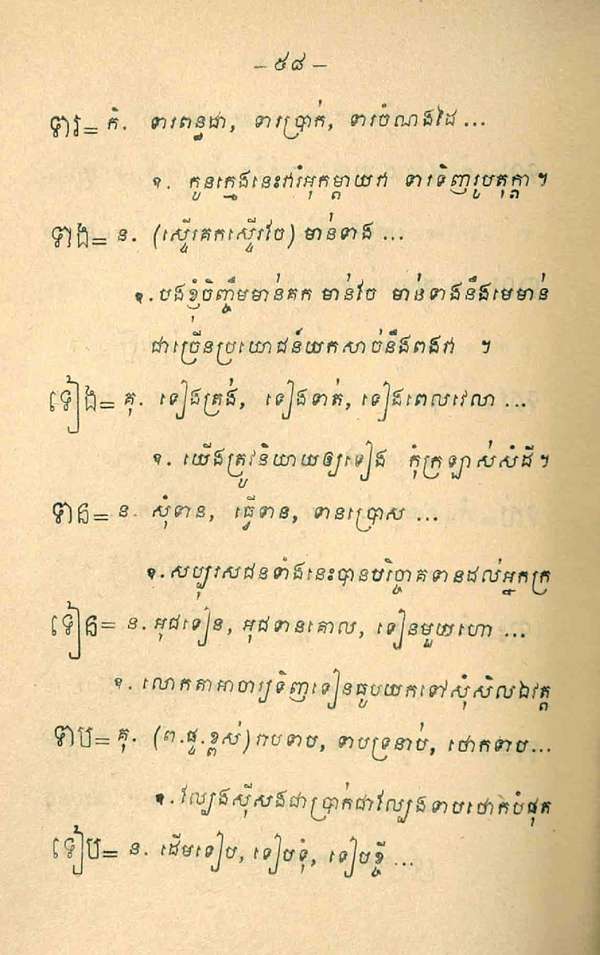 – ៥៨ –
ទារ= កិ. ទារពន្ធដា, ទារប្រាក់, ទារចំណងដៃ ...
ឧ. កូនក្មេងនេះវារំអុកម្ដាយវា ទារទិញរូបតុក្កតា ។
ទាង= ន. (ស្ទើរគកស្ទើរចែ) មាន់ទាង ...
ឧ. បងខ្ញុំចិញ្ចឹមមាន់គក មាន់ចែ មាន់ទាងនឹងមេមាន់
ជាច្រើនប្រយោជន៍យកសាច់នឹងពងវា ។
ទៀង= គុ. ទៀងត្រង់, ទៀងទាត់, ទៀងពេលវេលា ...
ឧ. យើងត្រូវនិយាយឲ្យទៀង កុំក្រឡាស់សំដី ។
ទាន= ន. សុំទាន, ធ្វើទាន, ទានប្រោស ...
ឧ. សប្បុរសជនទាំងនេះបានបរិច្ចាគទានដល់អ្នកក្រ
ទៀន= ន. អុជទៀន, អុជទានគោល, ទៀនមួយហោ ...
ឧ. លោកតាអាចារ្យទិញទៀនធូបយកទៅសុំសិលឯវត្ត
ទាប= គុ. (ព.ផ្ទុ.ខ្ពស់) រាបទាប, ទាបទ្រនាប់, ថោកទាប...
ឧ. ល្បែងស៊ីសងជាប្រាក់ជាល្បែងទាបថោកបំផុត
ទៀប= ន. ដើមទៀប, ទៀបទុំ, ទៀបខ្ចី ...